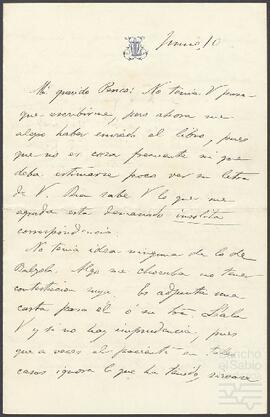 Junio 10
Mi querido Ponce: No tenía V para
que escribirme, pero ahora me
alegro haber enviado el libro, pues
que no es cosa frecuente ni que
deba estimarse poco ver su letra
de V. Bien sabe V lo que me
agrada esta demasiado insólita
correspondencia.
No tenía idea ninguna de lo de
Balzola. Algo me chocaba no tener
contestacion suya. Es adjunta una
carta para él ó su tío. Léala
V y si no hay imprudencia, pues
que a veces el paciente en
casos ignora lo que ha tenido,